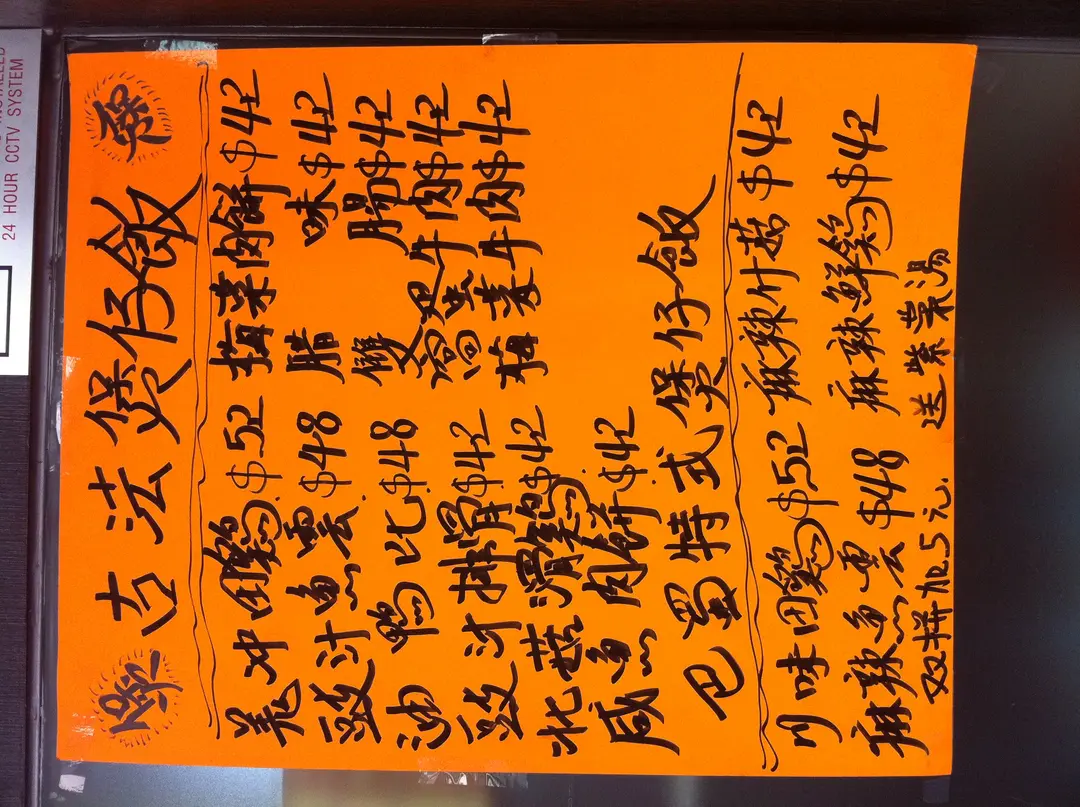 古法煲仔飯
羗冲田鷄$52 梅菜肉餅$42
豉汁魚雲$48 腊味$42
油鴨比$48 雙腸$42
豉汁排骨$42 窩旦牛肉$42
北菇滑鷄$42 梅菜牛肉$42
咸魚肉餅$42
巴蜀特式煲仔飯
川味田鷄$52 麻辣什菇$42
麻辣魚雲$48 麻辣鮮鷄$42
双拼加5元. 送紫菜湯
24 HOUR CCTV SYSTEM